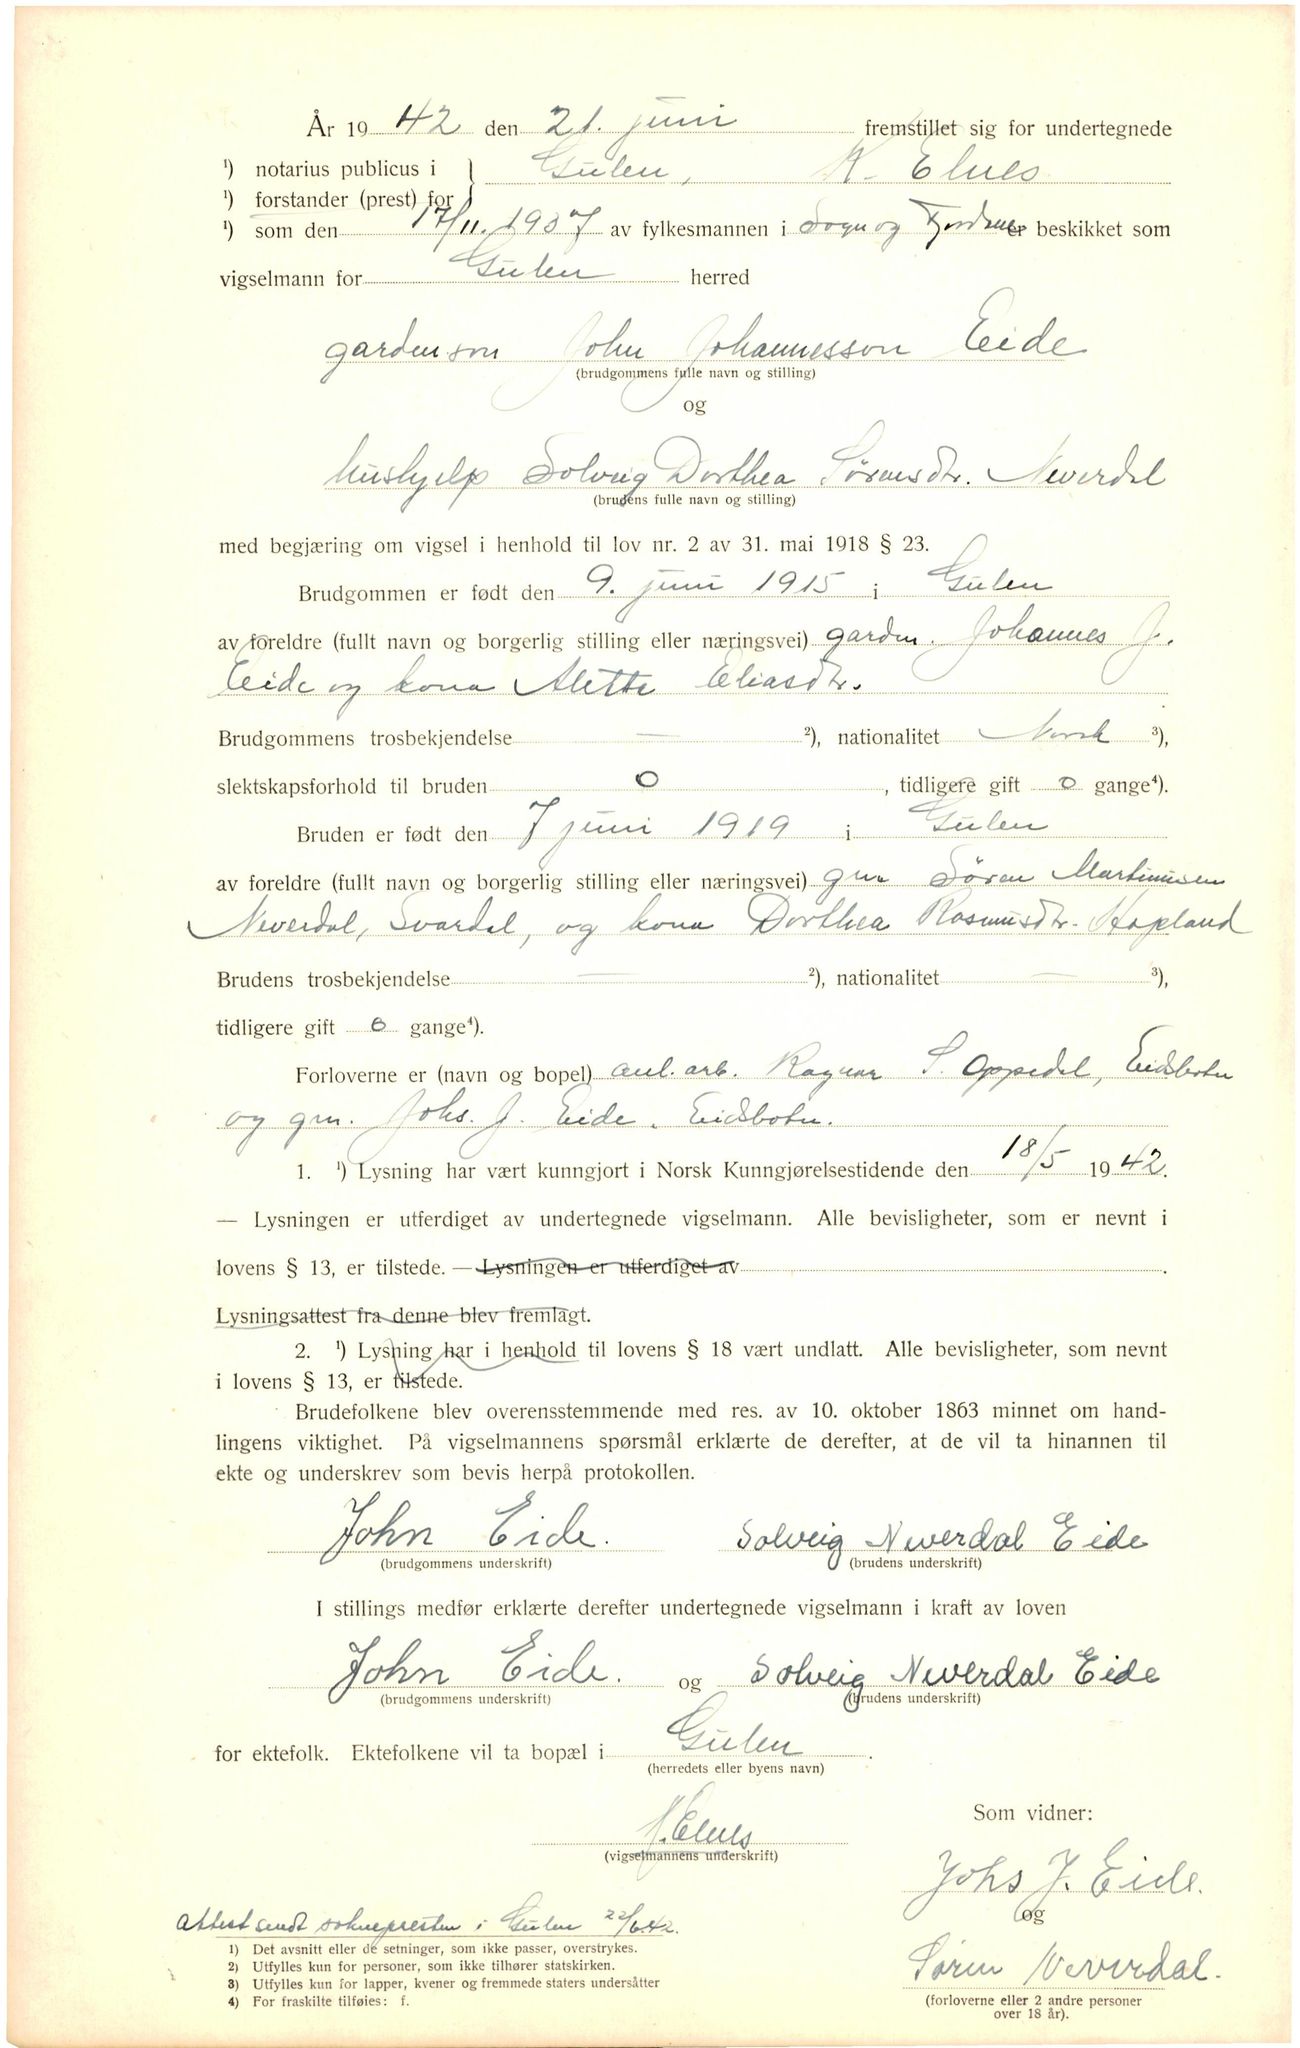 År 19 42 den 21. juni fremstillet sig for undertegnede
¹) notarius publicus i } Gulen, K. Elnes
¹) forstander (prest) for
¹) som den 17/11. 1937 av fylkesmannen i Sogn og Fjordane er beskikket som
vigselmann for Gulen herred
gardmson John Johannesson Eide
(brudgommens fulle navn og stilling)
og
hushjelp Solveig Dorthea Sørensdtr. Neverdal
(brudens fulle navn og stilling)
med begjæring om vigsel i henhold til lov nr. 2 av 31. mai 1918 § 23.
Brudgommen er født den 9. juni 1915 i Gulen
av foreldre (fullt navn og borgerlig stilling eller næringsvei) gardm. Johannes J.
Eide og kona Alette Eliasdtr.
Brudgommens trosbekjendelse — ²), nationalitet Norsk ³),
slektskapsforhold til bruden 0, tidligere gift 0 gange⁴).
Bruden er født den 7 juni 1919 i Gulen
av foreldre (fullt navn og borgerlig stilling eller næringsvei) gm. Søren Martinusen
Neverdal, Svardal, og kona Dorthea Rasmusdtr. Hopland
Brudens trosbekjendelse — ²), nationalitet — ³),
tidligere gift 0 gange⁴).
Forloverne er (navn og bopel) anl. arb. Ragnar S. Oppedal, Eidsbotn
og gm. Johs. J. Eide, Eidsbotn.
1. ¹) Lysning har vært kunngjort i Norsk Kunngjørelsestidende den 18/5 1942.
— Lysningen er utferdiget av undertegnede vigselmann. Alle bevisligheter, som er nevnt i
lovens § 13, er tilstede. — Lysningen er utferdiget av .
Lysningsattest fra denne blev fremlagt.
2. ¹) Lysning har i henhold til lovens § 18 vært undlatt. Alle bevisligheter, som nevnt
i lovens § 13, er tilstede.
Brudefolkene blev overensstemmende med res. av 10. oktober 1863 minnet om hand-
lingens viktighet. På vigselmannens spørsmål erklærte de derefter, at de vil ta hinannen til
ekte og underskrev som bevis herpå protokollen.
John Eide. Solveig Neverdal Eide
(brudgommens underskrift) (brudens underskrift)
I stillings medfør erklærte derefter undertegnede vigselmann i kraft av loven
John Eide. og Solveig Neverdal Eide
(brudgommens underskrift) (brudens underskrift)
for ektefolk. Ektefolkene vil ta bopæl i Gulen.
(herredets eller byens navn)
Som vidner:
K. Elnes
(vigselmannens underskrift)
Johs J. Eide.
og
Søren Neverdal.
(forloverne eller 2 andre personer
over 18 år).
Attest sendt soknepresten i Gulen 22/6.42.
1) Det avsnitt eller de setninger, som ikke passer, overstrykes.
2) Utfylles kun for personer, som ikke tilhører statskirken.
3) Utfylles kun for lapper, kvener og fremmede staters undersåtter
4) For fraskilte tilføies: f.